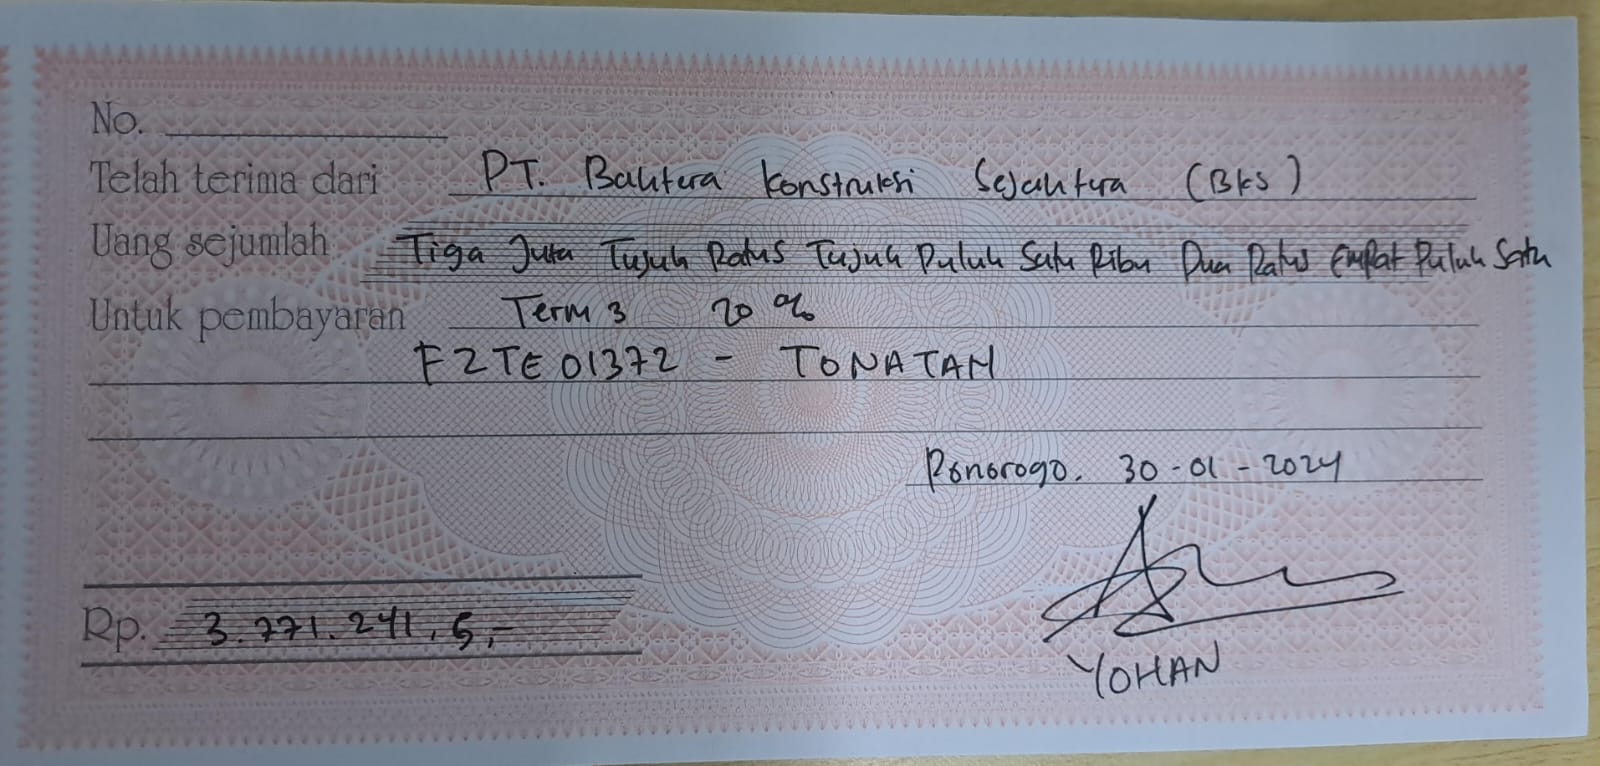 No.
Telah terima dari PT. Bahtera Konstruksi Sejahtera (BKS)
Uang sejumlah Tiga Juta Tujuh Ratus Tujuh Puluh Satu Ribu Dua Ratus Empat Puluh Satu
Untuk pembayaran Term 3 20 %
FZTE01372 - TONATAN
Ponorogo. 30-01-2024
Rp. 3.771.241,5,-
YOHAN